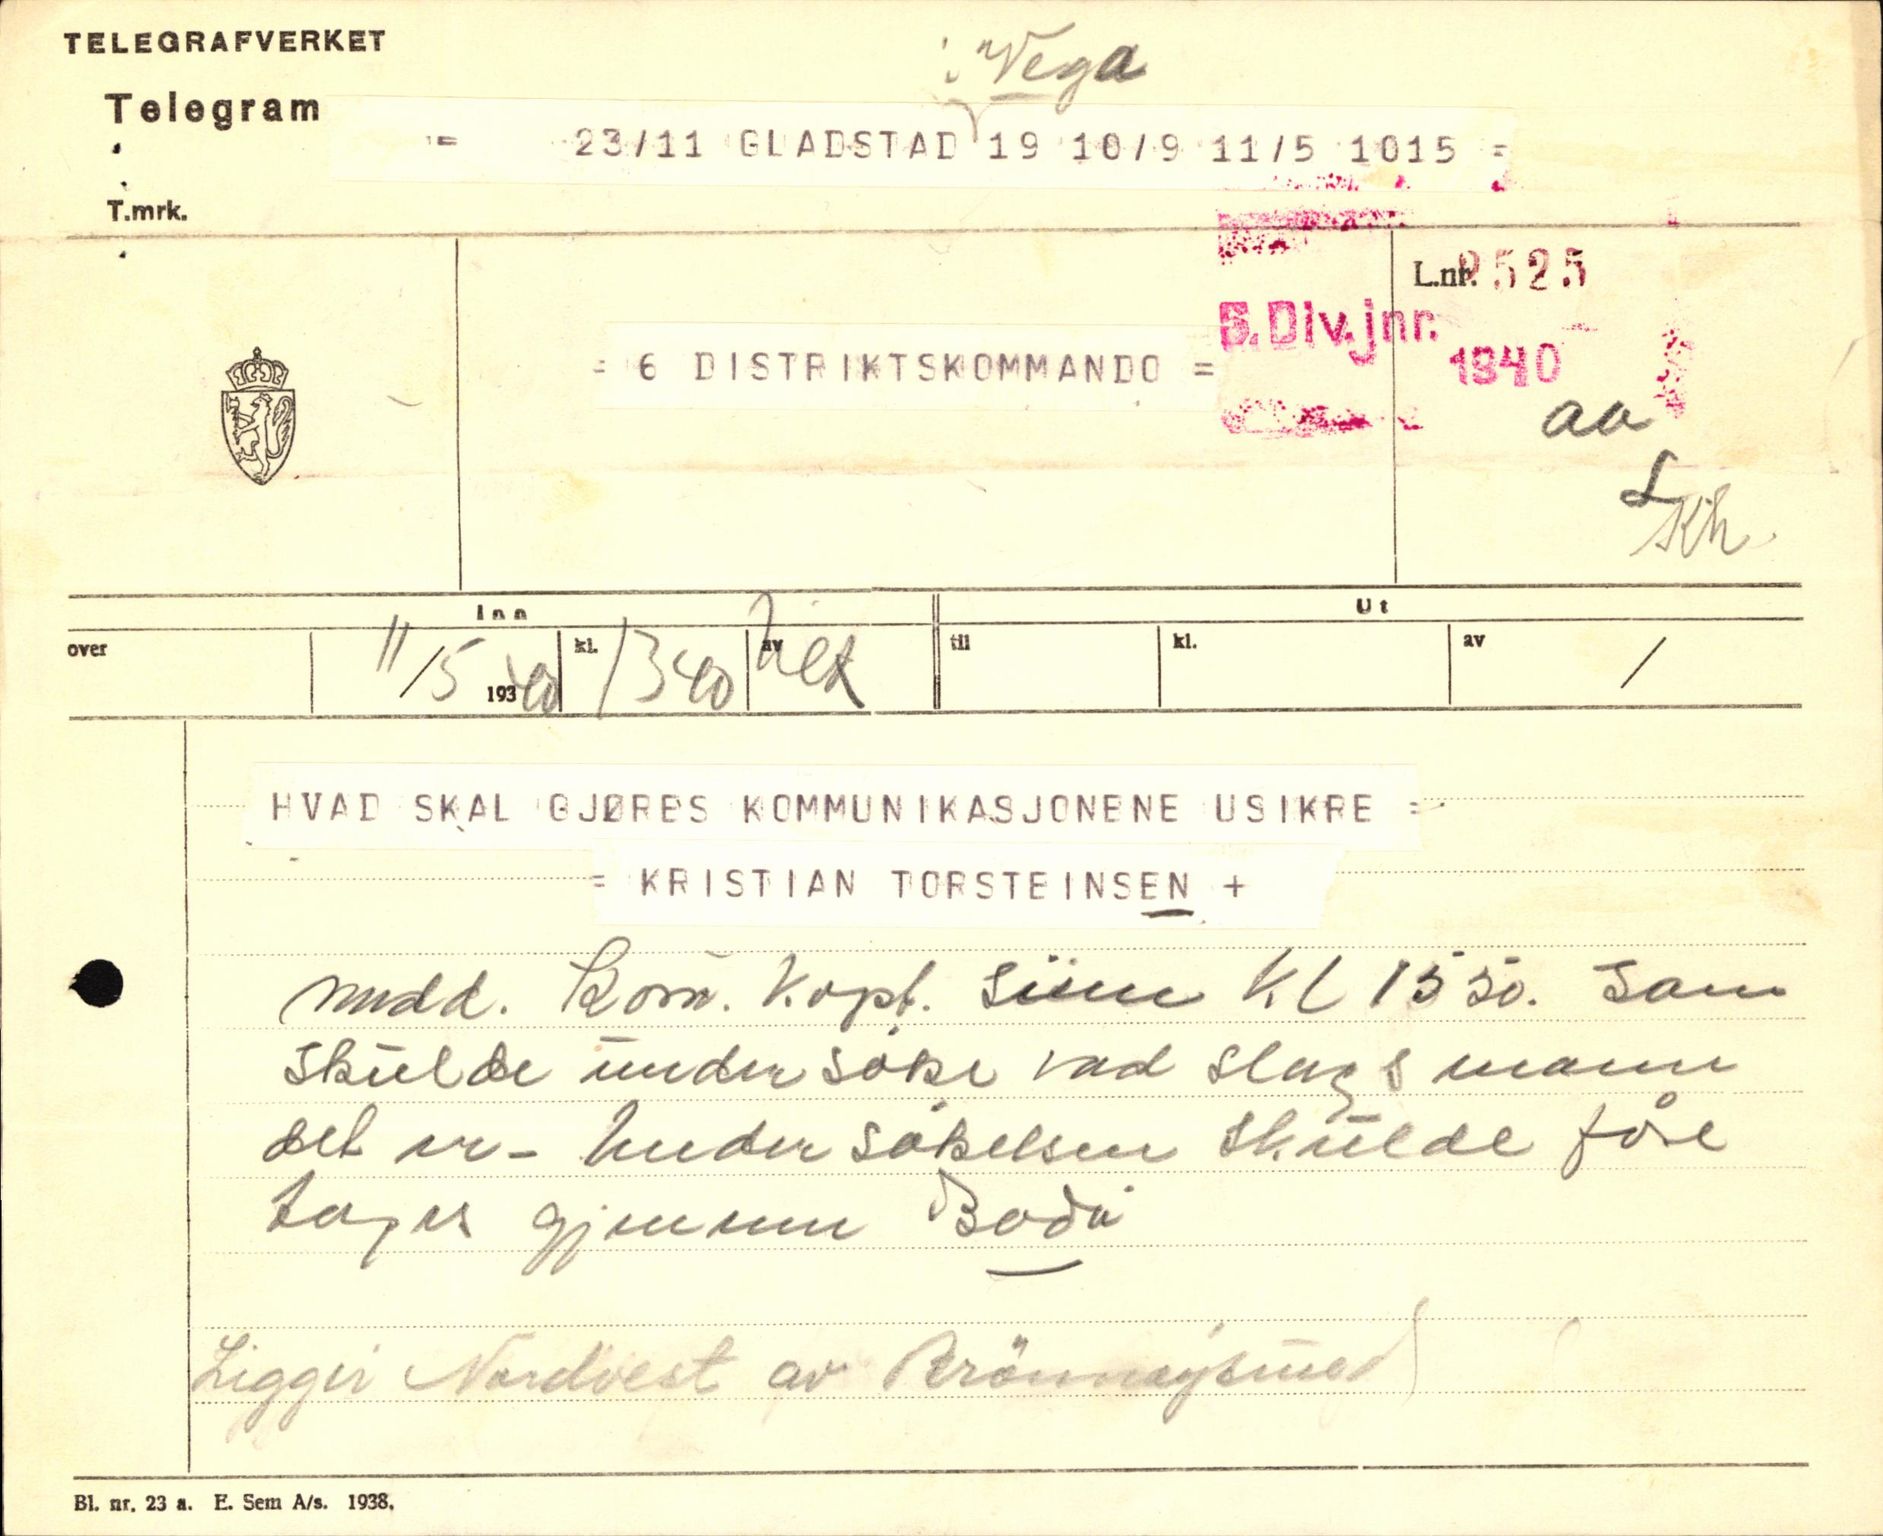 TELEGRAFVERKET
i "Vega
Telegram
= 23/11 GLADSTAD 19 10/9 11/5 1015 =
T.mrk.
L.nr. 2525
6. Div. jnr.
1940
= 6 DISTRIKTSKOMMANDO =
Kh.
Inn Ut
over 11/5 19340 kl. 1340 av til kl. av /
HVAD SKAL GJØRES KOMMUNIKASJONENE USIKRE =
= KRISTIAN TORSTEINSEN +
medd. Kom. Kapt. Siem Kl 1550. Som
skulde undersöke vad slags mann
det er - Undersökelsen skulde före
tages gjennem Bodö
Ligger Nordvest av Brönnöysund
Bl. nr. 23 a. E. Sem A/s. 1938.